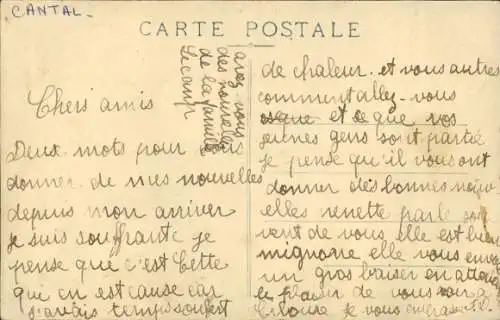 CANTAL.
CARTE POSTALE
avez vous
des nouvelles
de la famille
Lecamp
Chers amis
Deux mots pour vous
donner de mes nouvelles
depuis mon arriver
je suis souffrante je
pense que c'est Cette
qui en est cause car
j'avais temps souffert
de chaleur. et vous autres
comment allez-vous
est ce que vos
jeunes gens sont partie
je pense qu'il vous ont
donner des bonnes nouv
elles renette parle sou
vent de vous elle est bien
mignone elle vous envoie
un gros baiser en atten
le plaisir de vous voir a
je vous embrasse